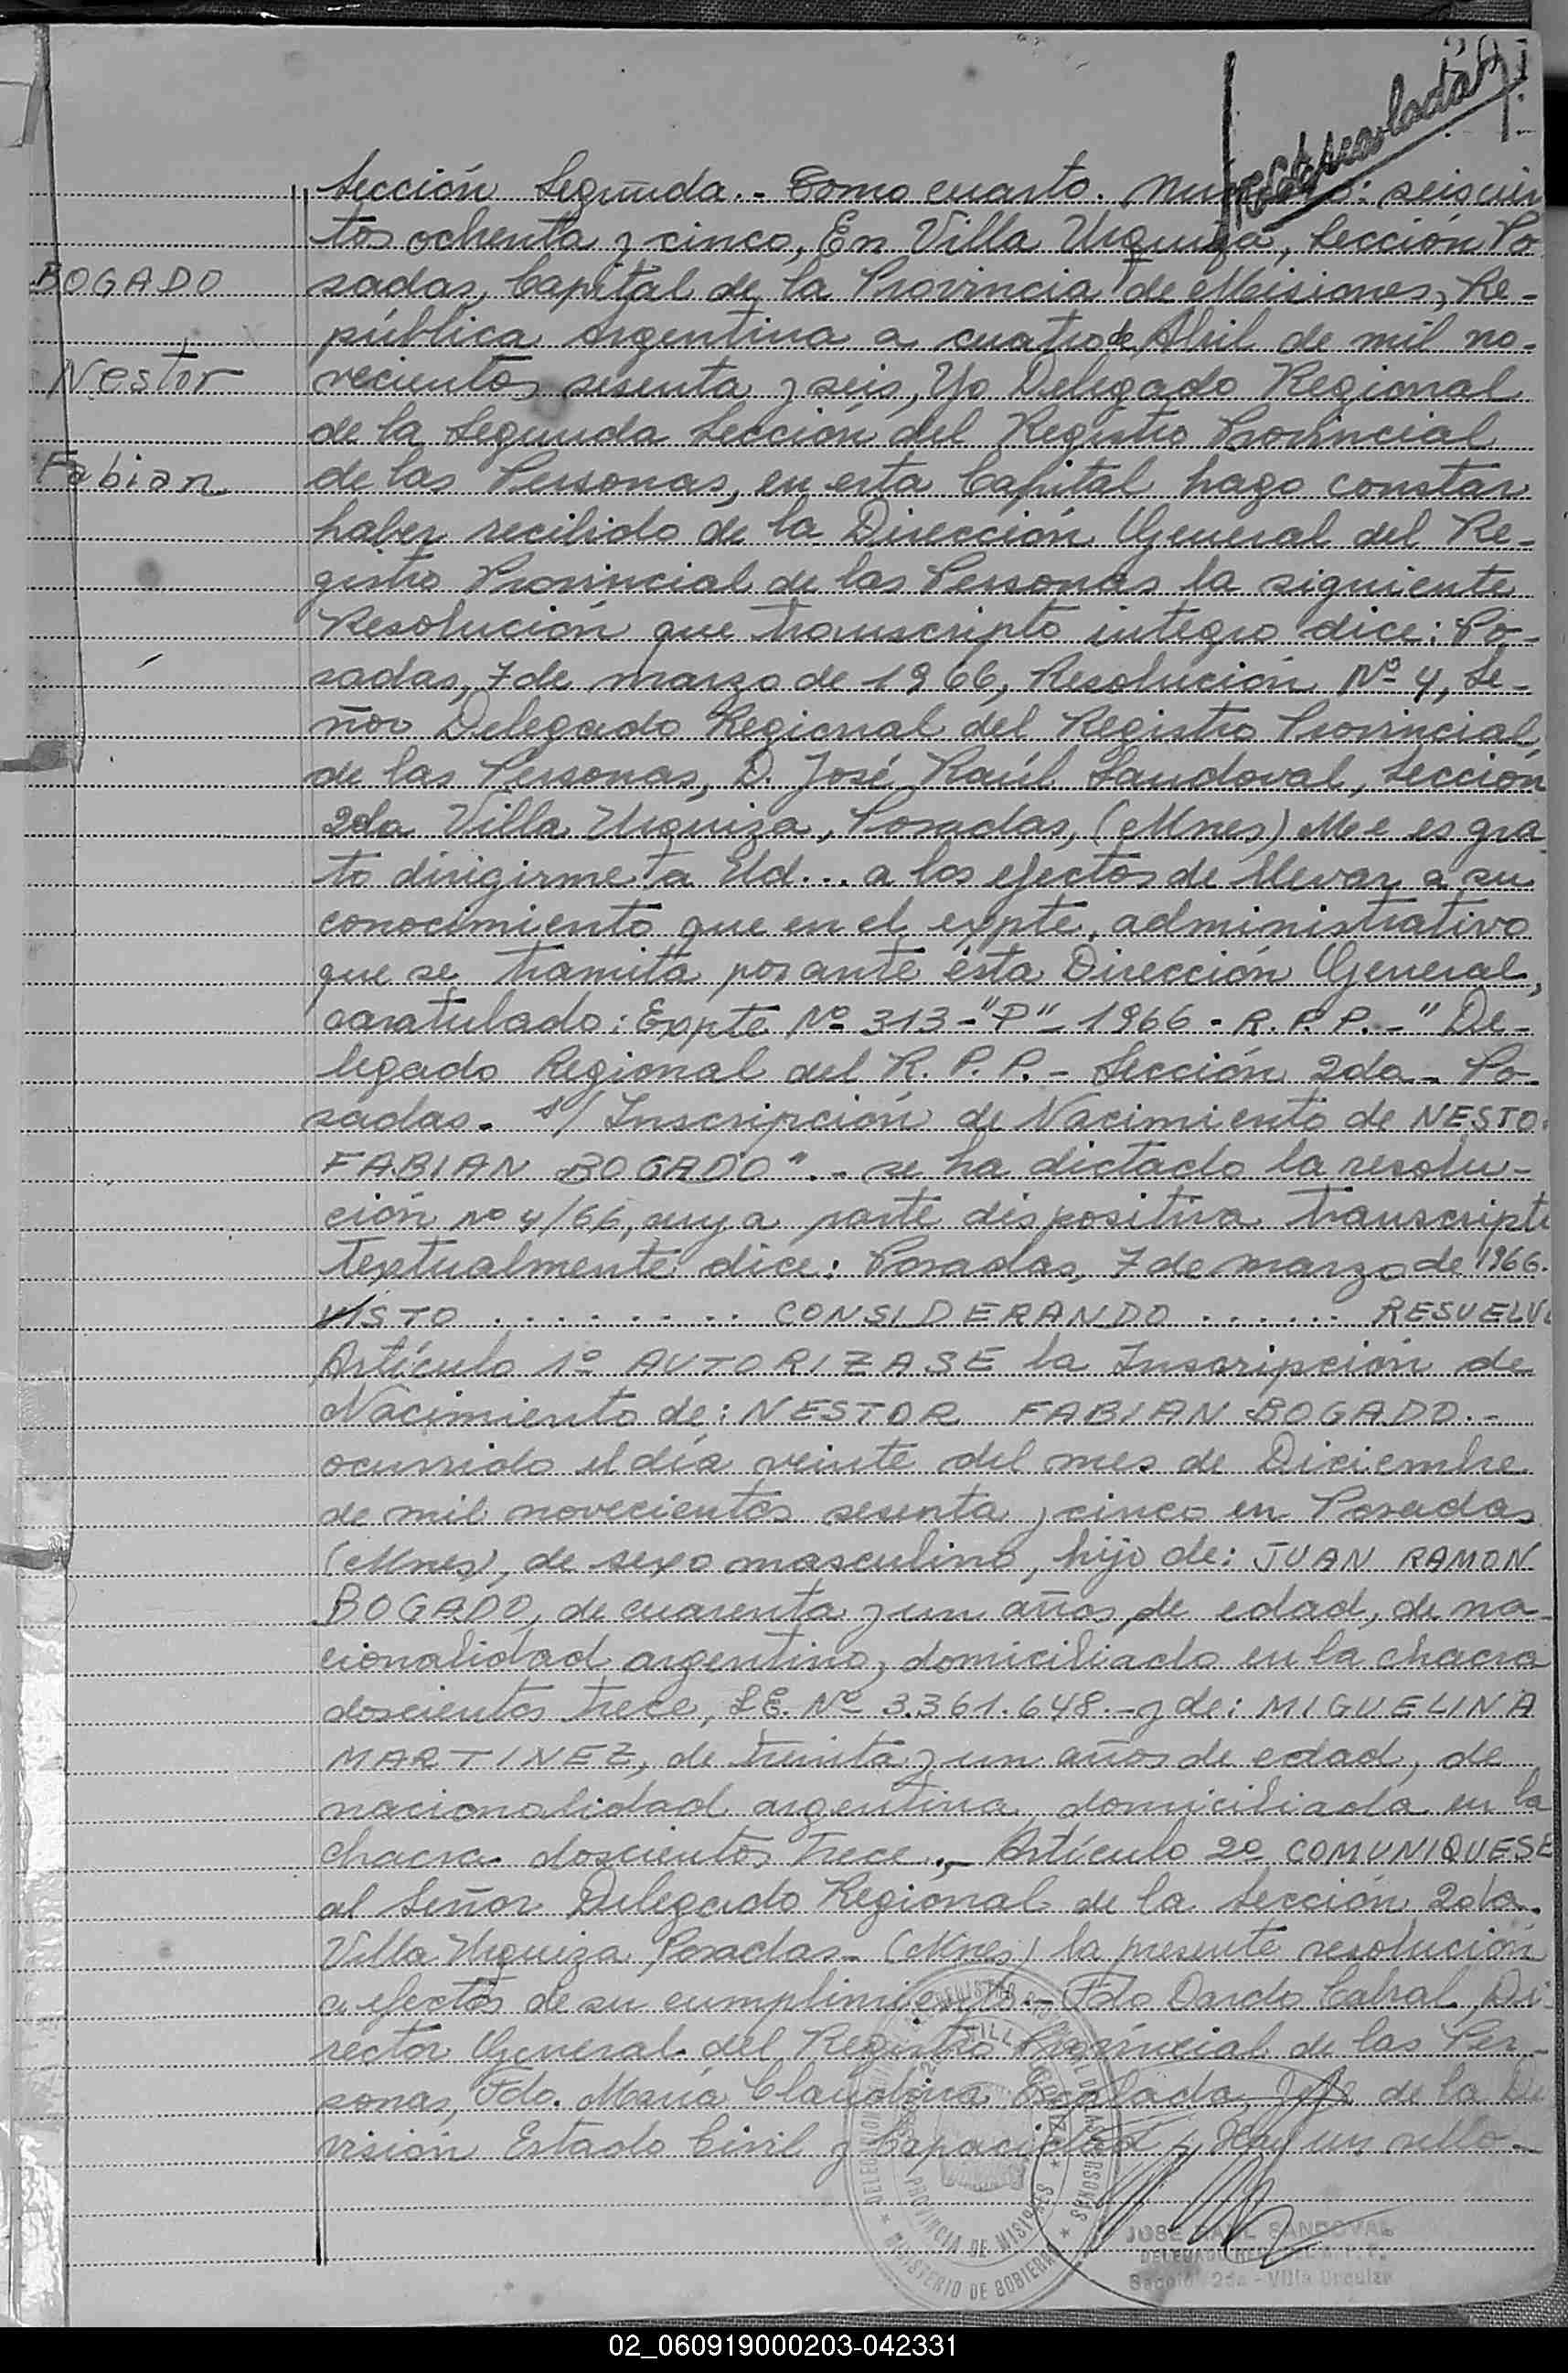 Recaratulada
Sección Segunda.- Tomo cuarto. Número: seiscien
tos ochenta y cinco, En Villa Urquiza, Sección Po
BOGADO
sadas, Capital de la Provincia de Misiones, Re-
pública Argentina a cuatro de Abril de mil no-
Nestor
vecientos sesenta y seis, Yo Delegado Regional
de la Segunda Sección del Registro Provincial
Fabian
de las Personas, en esta Capital hago constar
haber recibido de la Dirección General del Re-
gistro Provincial de las Personas la siguiente
Resolución que transcripto integro dice: Po-
sadas, 7 de marzo de 1966, Resolución Nº 4, Se-
ñor Delegado Regional del Registro Provincial
de las Personas, D. José Raúl Sandoval, Sección
2da Villa Urquiza, Posadas, (Mnes) Me es gra
to dirigirme a Ud... a los efectos de llevar a su
conocimiento que en el expte. administrativo
que se tramita por ante ésta Dirección General,
caratulado: Expte Nº 313-"P"-1966-R.P.P.-"De-
legado Regional del R.P.P.- Sección 2da- Po-
sadas. s/ Inscripción de Nacimiento de NESTO
FABIAN BOGADO".- se ha dictado la resolu-
ción nº 4/66, cuya parte dispositiva transcript
textualmente dice: Posadas, 7 de marzo de 1966.
VISTO ......... CONSIDERANDO ...... RESUELVE
Artículo 1º AUTORIZASE la Inscripción de
Nacimiento de: NESTOR FABIAN BOGADO.-
ocurrido el día veinte del mes de Diciembre
de mil novecientos sesenta y cinco en Posadas
(Mnes), de sexo masculino, hijo de: JUAN RAMON
BOGADO, de cuarenta y un años de edad, de na-
cionalidad argentino, domiciliado en la chacra
doscientos trece, L.E. Nº 3.361.648.- y de: MIGUELINA
MARTINEZ, de treinta y un años de edad, de
nacionalidad argentina domiciliada en la
chacra doscientos trece.- Artículo 2º COMUNIQUESE
al Señor Delegado Regional de la Sección 2da.
Villa Urquiza Posadas- (Mnes) la presente resolución
a efectos de su cumplimiento.- Fdo Dardo Cabral Di-
rector General del Registro Provincial de las Per-
sonas, Fdo. María Claudina Escalada, Jefe de la Di
visión Estado Civil y Capacidad y Hay un sello.-
PROVINCIA DE MISIONES
MINISTERIO DE GOBIERNO
JOSE RAUL SANDOVAL
DELEGADO REG. DEL R. P. P.
Sección 2da - Villa Urquiza
02_060919000203-042331